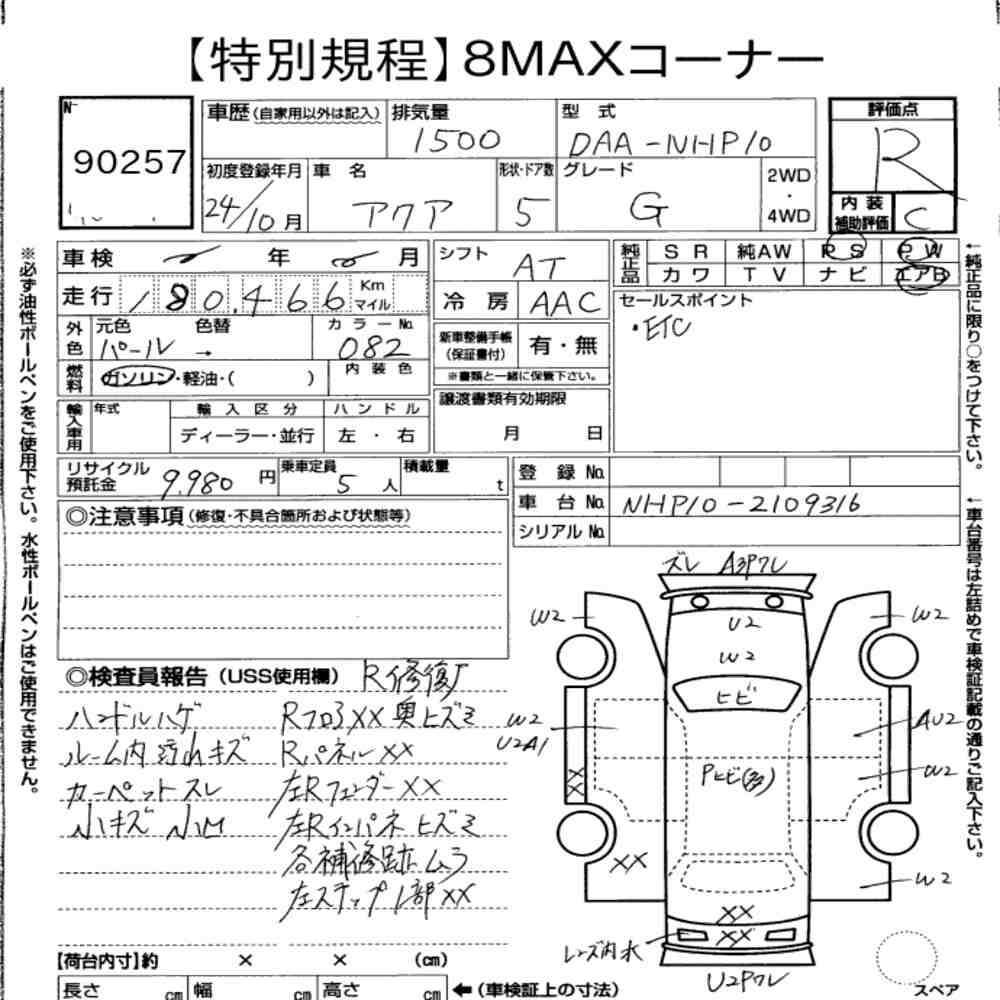 【特別規程】8MAXコーナー
№ 90257
車歴（自家用以外は記入） 排気量 1500 型式 DAA-NHP10 評価点 R
初度登録年月 24/10月 車名 アクア 形状・ドア数 5 グレード G 2WD・4WD 内装補助評価 C
車検 年 月 シフト AT 純正品 SR 純AW PS PW
走行 180,466 Km マイル 冷房 AAC カワ TV ナビ エアB
外色 元色 パール 色替 → カラーNo. 082 新車整備手帳（保証書付） 有・無 セールスポイント
・ETC
燃料 ガソリン・軽油・（ ） 内装色 ※書類と一緒に保管下さい。
輸入車用 年式 輸入区分 ハンドル 譲渡書類有効期限
ディーラー・並行 左・右 月 日
リサイクル預託金 9,980円 乗車定員 5人 積載量 t 登録No.
車台No. NHP10-2109316
シリアルNo.
◎注意事項（修復・不具合箇所および状態等）
◎検査員報告（USS使用欄） R修復歴
ハンドルハゲ Rフロア XX 奥ヒズミ
ルーム内汚れキズ Rパネル XX
カーペットスレ 左Rフェンダー XX
小キズ 小凹 左Rインパネ ヒズミ
各補修跡ムラ
左ステップ 1部 XX
【荷台内寸】約 × × （cm）
長さ cm 幅 cm 高さ cm ←（車検証上の寸法）
ズレ A3Pワレ
W2 U2 W2
W2
ヒビ
W2 AU2
U2A1
Pヒビ(多) W2
XX
XX W2
XX
レンズ内水 XX
U2Pワレ
スペア
※必ず油性ボールペンをご使用下さい。水性ボールペンはご使用できません。
←純正品に限り○をつけて下さい。
←車台番号は左詰めで車検証記載の通りご記入下さい。